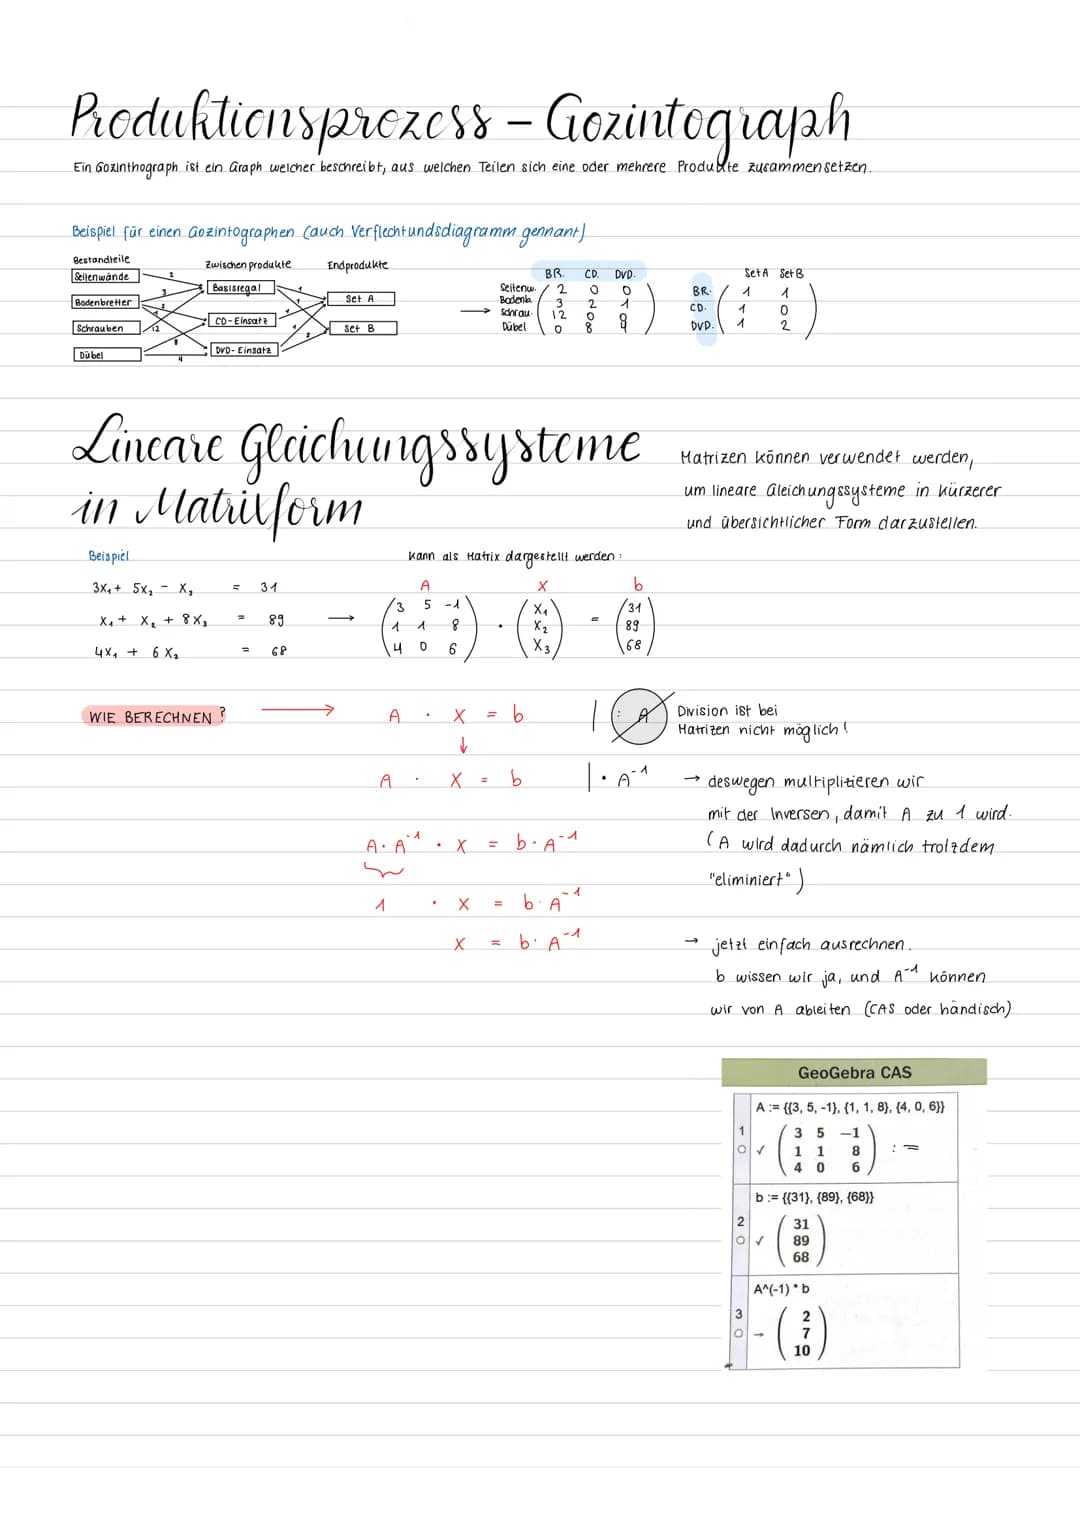 Produktionsprozess – Gozintograph
Ein Gozinthograph ist ein Graph welcher beschreibt, aus welchen Teilen sich eine oder mehrere Produkte zusammensetzen.
Beispiel für einen Gozintographen (auch Verflechtundsdiagramm gennant)
Bestandteile Zwischenprodukte Endprodukte
Seitenwände
Bodenbretter
Schrauben
Dübel
Basisregal
CD-Einsatz
DVD-Einsatz
Set A
Set B
BR. CD. DVD.
Seitenw. 2 0 0
Bodenb. 3 2 1
Schrau. 12 0 0
Dübel 0 8
Set A Set B
BR. 1 1
CD. 1 0
DVD. 1 2
Lineare Gleichungssysteme
in Matrixform
Matrizen können verwendet werden,
um lineare Gleichungssysteme in kürzerer
und übersichtlicher Form darzustellen.
Beispiel
3x₁ + 5x₂ - x₃ = 31
x₁ + x₂ + 8x₃ = 89
4x₁ + 6x₃ = 68
Kann als Matrix dargestellt werden:
A X b
3 5 -1 X₁ 31
1 1 8 · X₂ = 89
4 0 6 X₃ 68
WIE BERECHNEN?
A · X = b | : A
Division ist bei
Matrizen nicht möglich!
A · X = b | · A⁻¹
→ deswegen multiplitieren wir
mit der Inversen, damit A zu 1 wird.
(A wird dadurch nämlich trotzdem
"eliminiert")
A · A⁻¹ · X = b · A⁻¹
1 · X = b · A⁻¹
X = b · A⁻¹
→ jetzt einfach ausrechnen.
b wissen wir ja, und A⁻¹ können
wir von A ableiten (CAS oder händisch)
GeoGebra CAS
A := {{3, 5, -1}, {1, 1, 8}, {4, 0, 6}}
1
3 5 −1
1 1 8 :=
4 0 6
b := {{31}, {89}, {68}}
2
31
89
68
A^(-1) * b
3
→
2
7
10